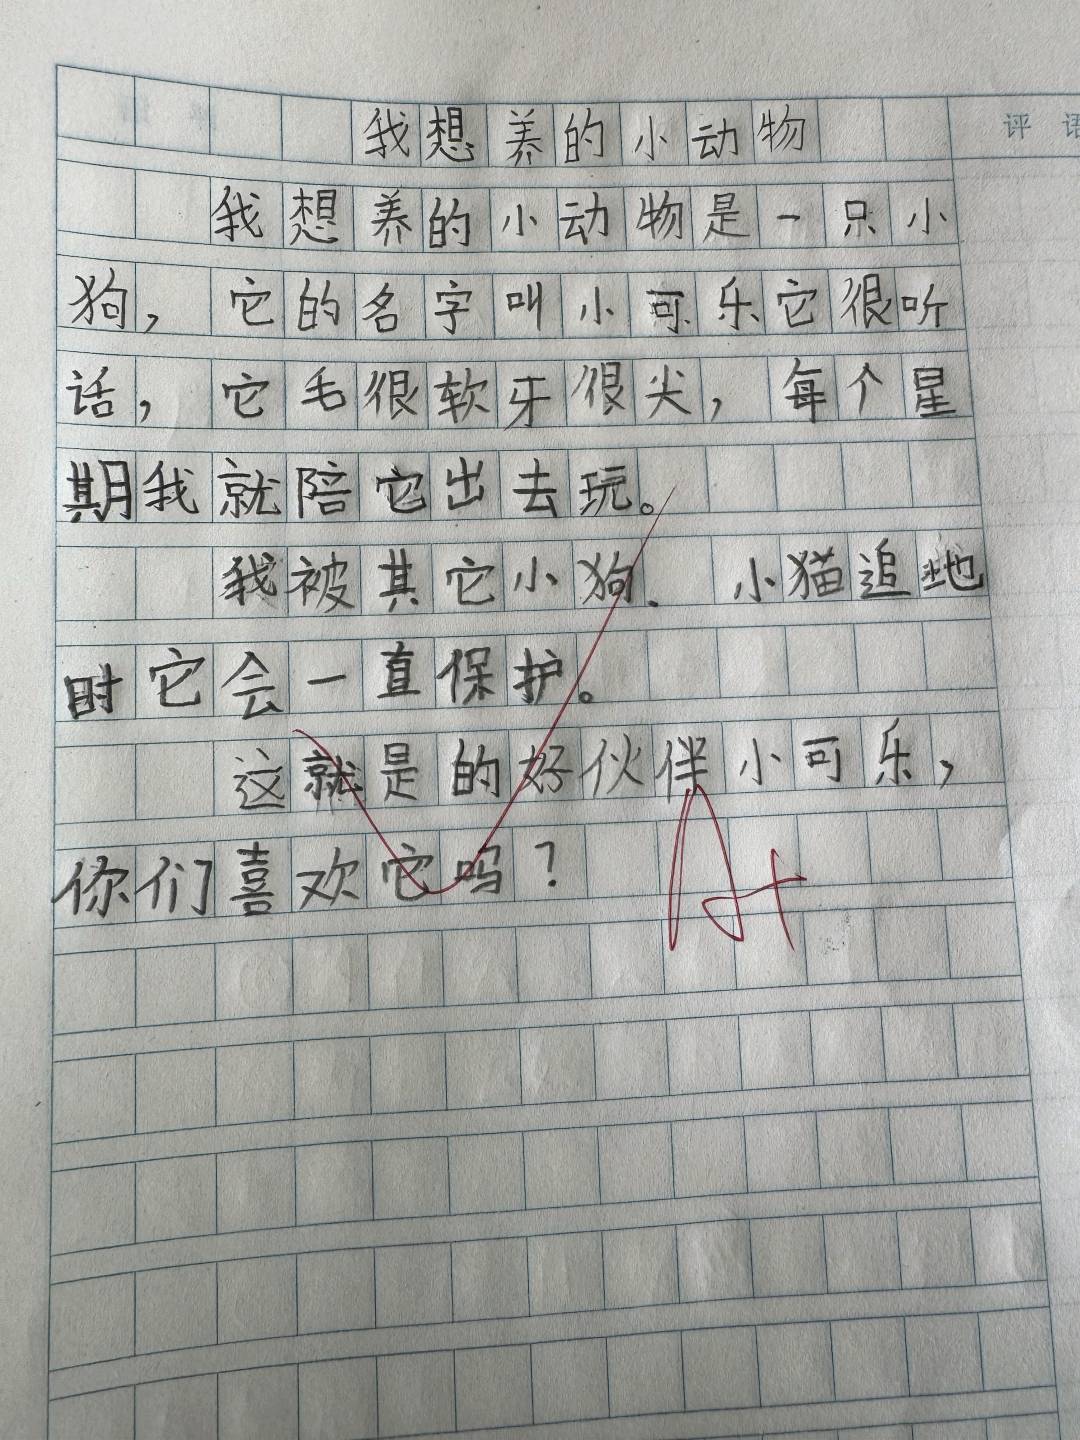 评 语
我想养的小动物
我想养的小动物是一只小
狗，它的名字叫小可乐它很听
话，它毛很软牙很尖，每个星
期我就陪它出去玩。
我被其它小狗．小猫追地
时它会一直保护。
这就是的好伙伴小可乐，
你们喜欢它吗？
A+